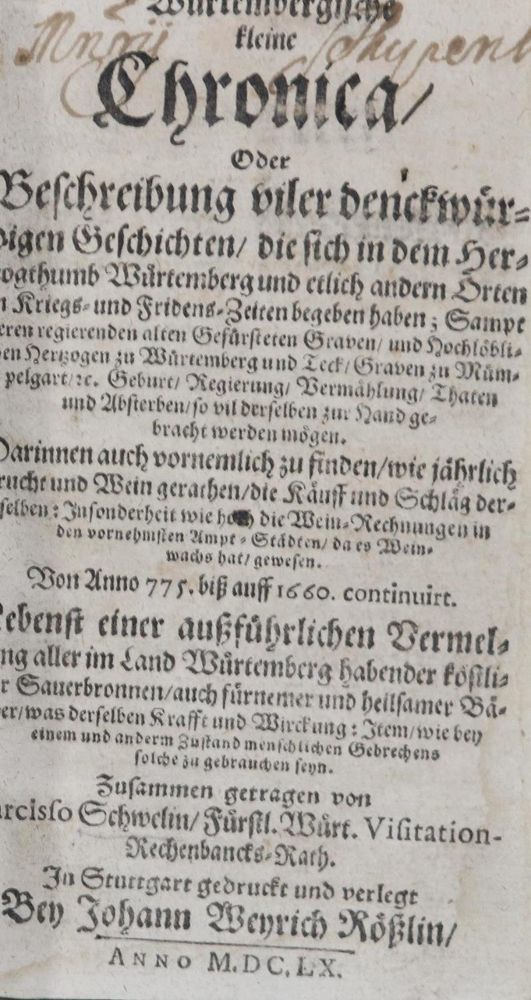 Würtembergische
kleine
Chronica/
Oder
Beschreibung viler denckwür-
digen Geschichten/ die sich in dem Her-
zogthumb Würtemberg und etlich andern Orten
in Kriegs- und Fridens-Zeiten begeben haben; Sampt
deren regierenden alten Gefürsteten Graven/ und Hochlöbli-
chen Hertzogen zu Würtemberg und Teck/ Graven zu Müm-
pelgart/ ꝛc. Geburt/ Regierung/ Vermählung/ Thaten
und Absterben/ so vil derselben zur Hand ge-
bracht werden mögen.
Darinnen auch vornemlich zu finden/ wie jährlich
Frucht und Wein gerathen/ die Käuff und Schläg der-
selben: Insonderheit wie hoch die Wein-Rechnungen in
den vornehmsten Ampt-Städten/ da es Wein-
wachs hat/ gewesen.
Von Anno 775. biß auff 1660. continuirt.
Nebenst einer außführlichen Vermel-
dung aller im Land Würtemberg habender köstli-
cher Sauerbronnen/ auch fürnemer und heilsamer Bä-
der/ was derselben Krafft und Wirckung: Item/ wie bey
einem und anderm Zustand menschlichen Gebrechens
solche zu gebrauchen seyn.
Zusammen getragen von
Narcisso Schwelin/ Fürstl. Würt. Visitation-
Rechenbancks-Rath.
In Stuttgart gedruckt und verlegt
Bey Johann Weyrich Rößlin/
ANNO M.DC.LX.